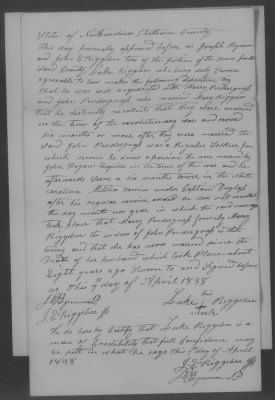 State of North carolina Chatham County
This day personally appeared before us Joseph
and John E Riggsbee two of the Justices of the peace for the
Said County Luke Riggsbee who being duly Sworn
agreeable to law makes the following deposition
That he was well acquainted with Harry Pendergraph
and John Pendergraph was married Mary Riggsbee
that he distinctly recollects that they were married
in the time of the revolutionary war and served
six months or more, after they were married the
said John Pendergraph was a Regular Soldier for
which service he drew a pension he was married by
John Hogan Esquire in the time of the war and he
afterwards Serve a six months tower in the North
carolina Militia Service under Captain
after his regular service ended he don not recollect
the day month nor year in which the said marriage
took place that Mary Pendergraph formerly Mary
Riggsbee the widow of John Pendergraph is still
living and that she has never married since the
Death of her husband which took Place about
Eight years ago Sworn to and Signed before
us This 7 day of April 1838
his
Luke Riggsbee
mark
J. E Riggsbee JP
We do hereby Certify that Luke Riggsbee is a
man of Credibility that full Confidence may
be put in what he says this 7 day of April
1838
J E Riggsbee JP